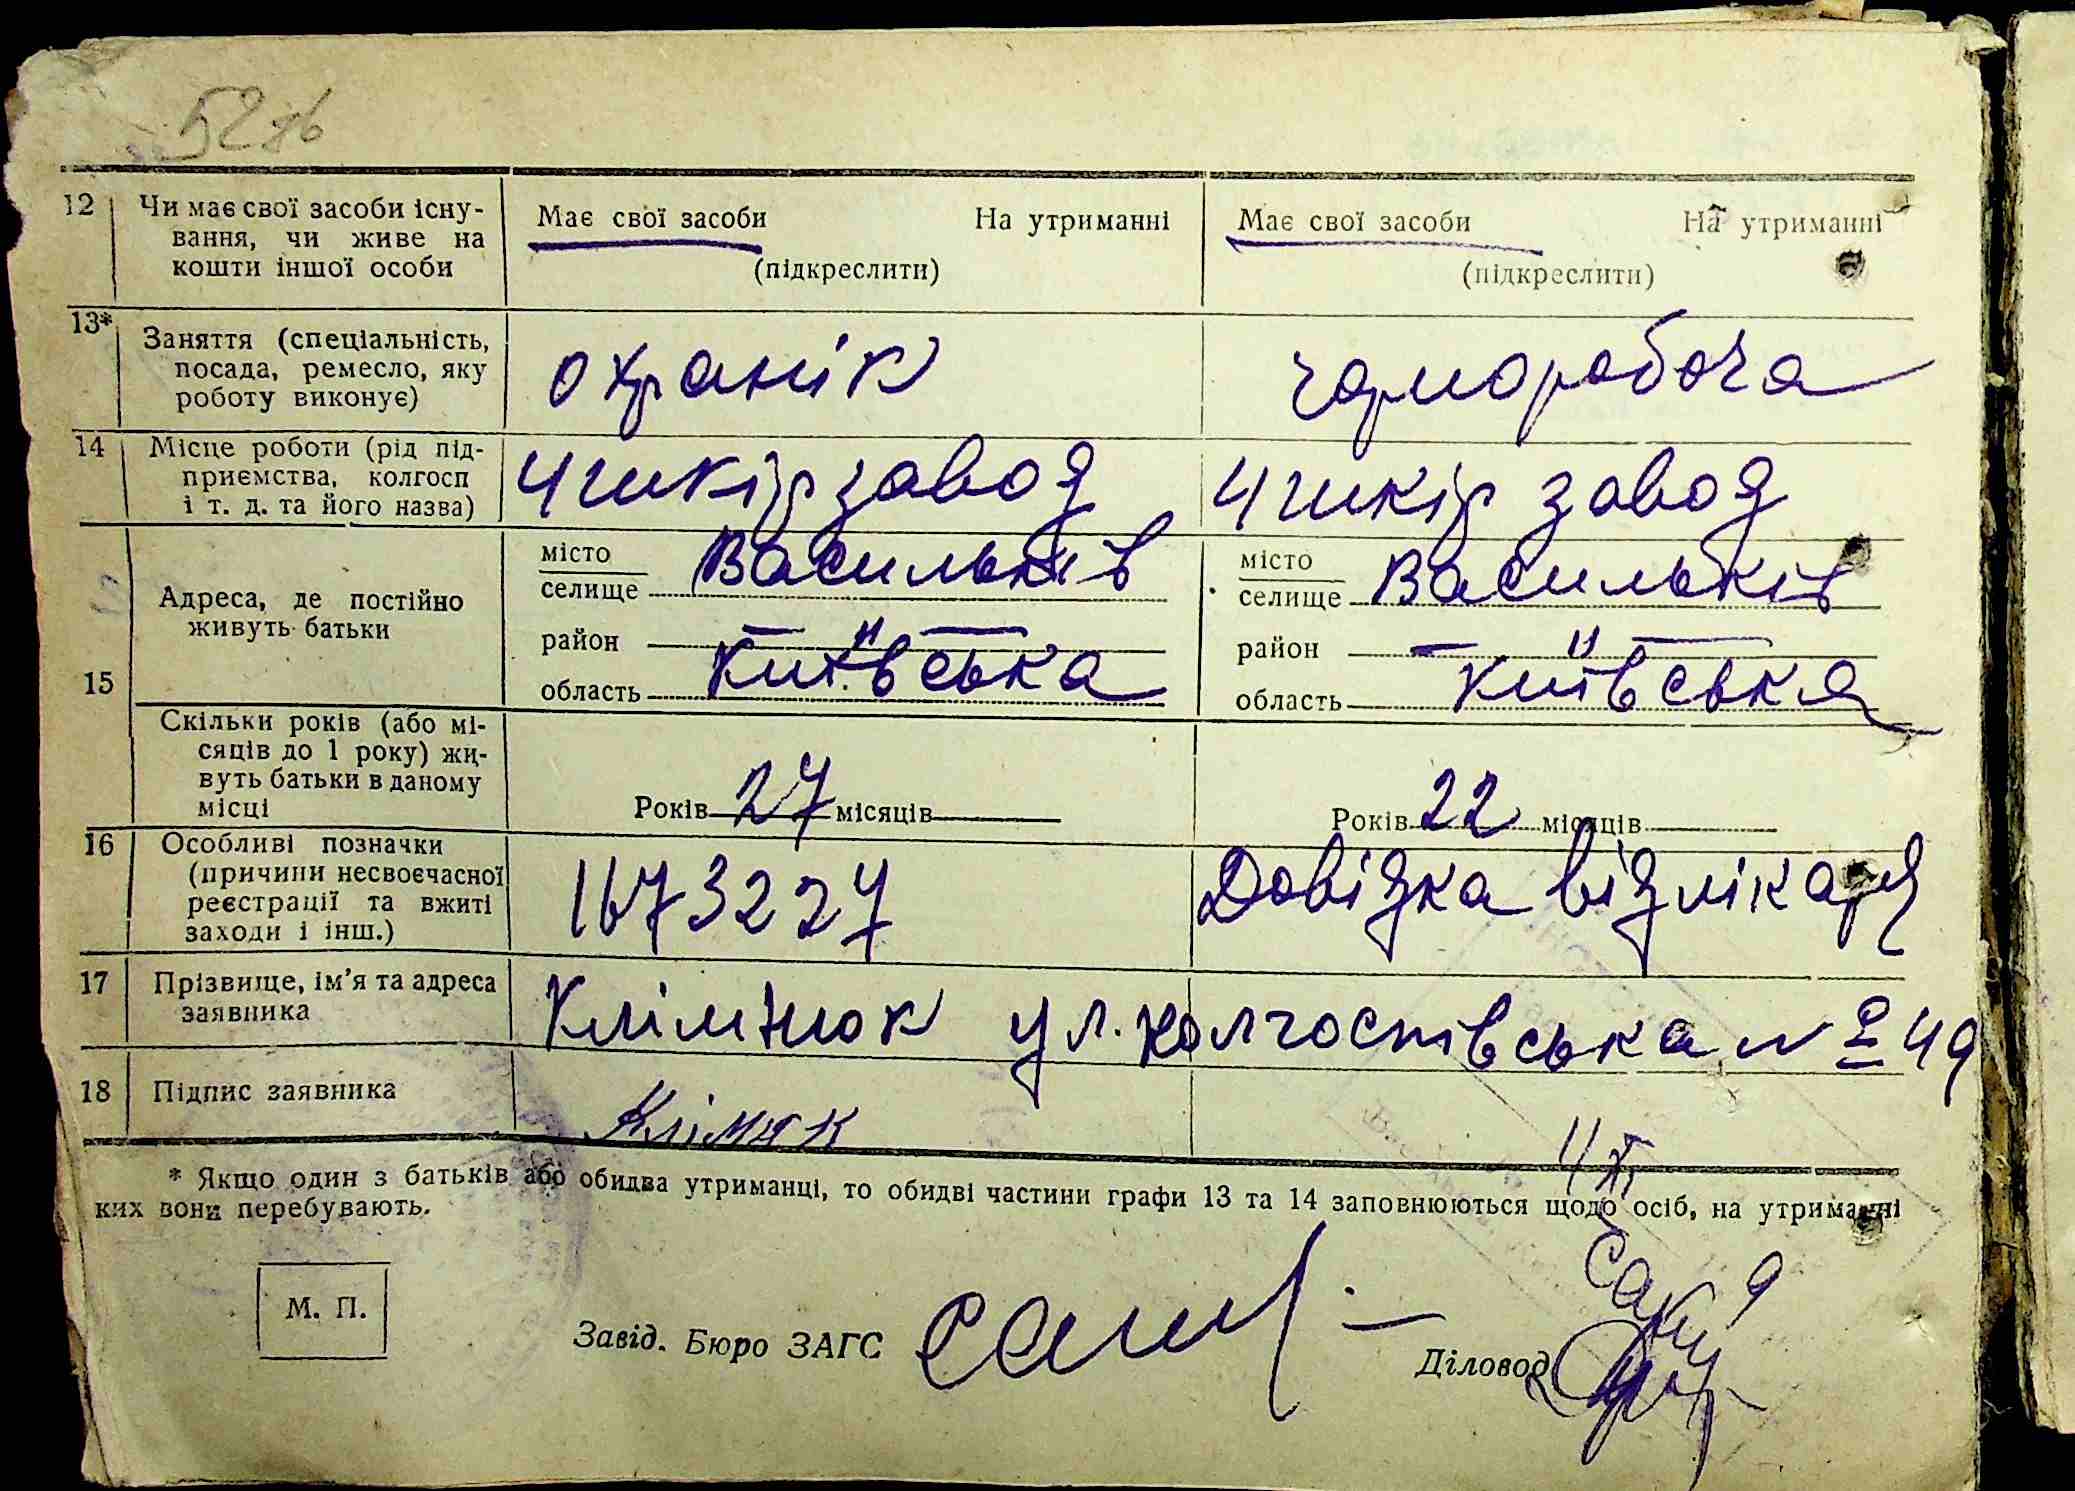 52зв
12 Чи має свої засоби існу- Має свої засоби На утриманні Має свої засоби На утриманні
вання, чи живе на
кошти іншої особи (підкреслити) (підкреслити)
13* Заняття (спеціальність,
посада, ремесло, яку охранік чорноробоча
роботу виконує)
14 Місце роботи (рід під-
приємства, колгосп 4 шкірзавод 4 шкір завод
і т. д. та його назва)
15 Адреса, де постійно
живуть батьки
місто Васильків місто Васильків
селище селище
район — район —
область Київська область Київська
Скільки років (або мі-
сяців до 1 року) жи-
вуть батьки в даному
місці Років 27 місяців Років 22 місяців
16 Особливі позначки
(причини несвоєчасної 1673227 Довідка від лікаря
реєстрації та вжиті
заходи і інш.)
17 Прізвище, ім'я та адреса Клімнюк ул. Колгоспівська № 49
заявника
18 Підпис заявника Клімнюк
4 XI
* Якщо один з батьків або обидва утриманці, то обидві частини графи 13 та 14 заповнюються щодо осіб, на утриманні
ких вони перебувають.
М. П.
Завід. Бюро ЗАГС
Діловод